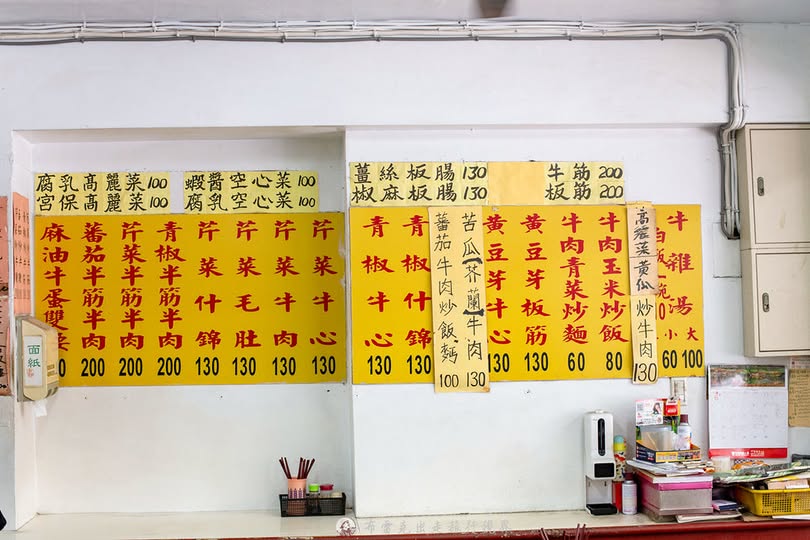 腐乳高麗菜100
宮保高麗菜100
蝦醬空心菜100
腐乳空心菜100
薑絲板腸130
椒麻板腸130
牛筋200
板筋200
麻油牛蛋雙
蕃茄半筋半肉 200
芹菜半筋半肉 200
青椒半筋半肉 200
芹菜什錦 130
芹菜毛肚 130
芹菜牛肉 130
芹菜牛心 130
青椒牛心 130
青椒什錦 130
苦瓜(芥蘭)牛肉 130
蕃茄牛肉炒飯 100
黃豆芽牛心 130
黃豆芽板筋 130
牛肉青菜炒麵 60
牛肉玉米炒飯 80
高麗菜黃瓜炒牛肉 130
白飯 碗 0
牛雜湯
小 60
大 100
面紙